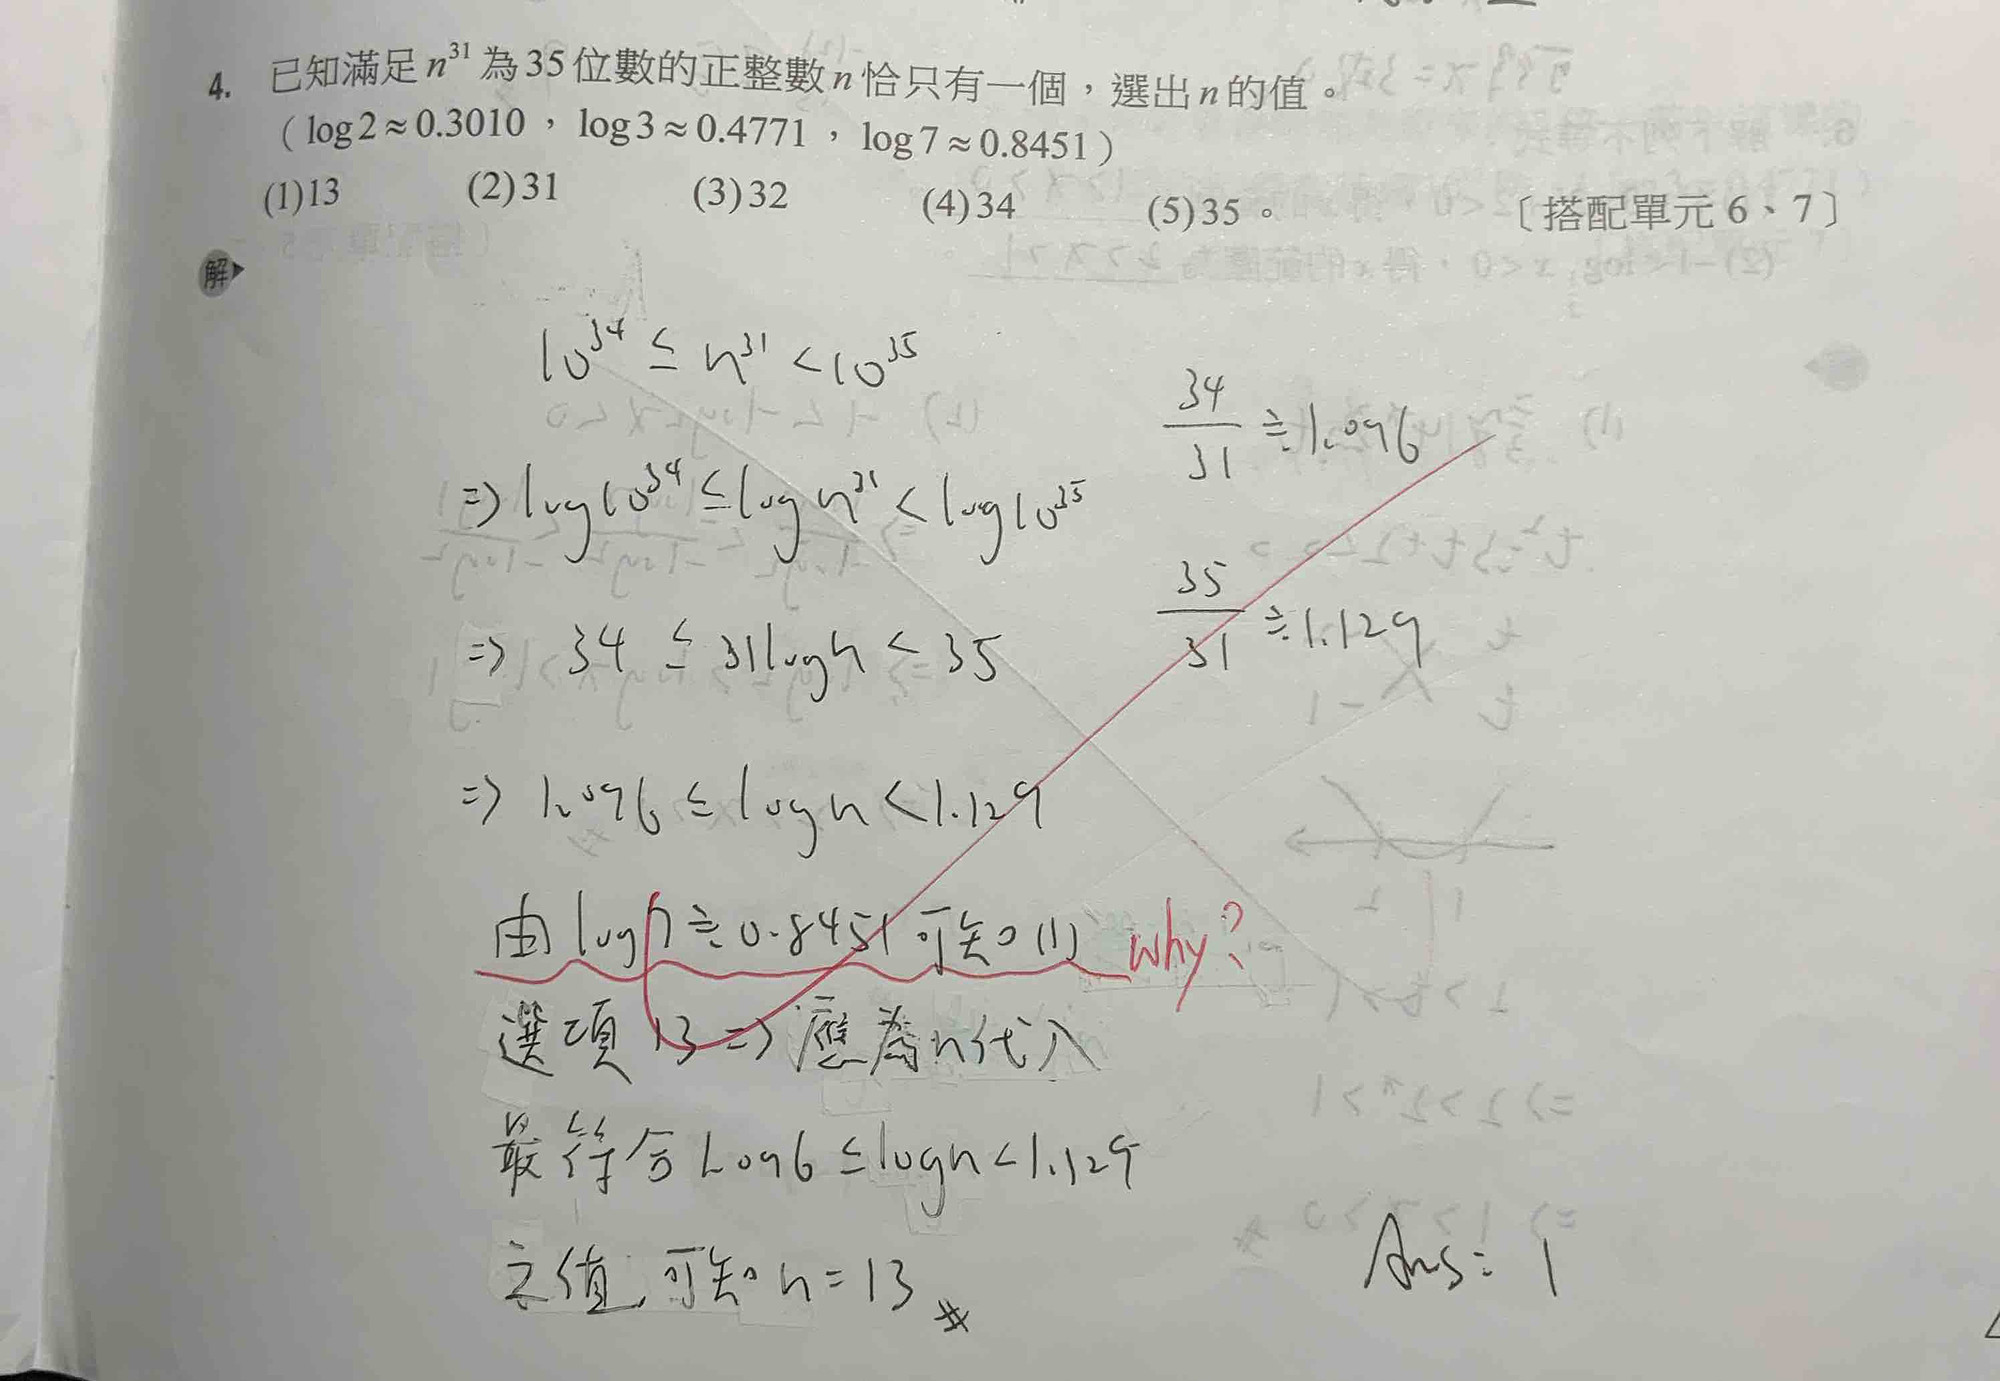 4. 已知滿足 n³¹ 為 35 位數的正整數 n 恰只有一個，選出 n 的值。
（log2≈0.3010，log3≈0.4771，log7≈0.8451）
(1)13 (2)31 (3)32 (4)34 (5)35。 〔搭配單元 6、7〕
解
10³⁴ ≤ n³¹ < 10³⁵
⇒ log10³⁴ ≤ log n³¹ < log10³⁵
⇒ 34 ≤ 31logn < 35
⇒ 1.096 ≤ logn < 1.129
34/31 ≒ 1.096
35/31 ≒ 1.129
由 log7 ≒ 0.8451 可知 (1) why?
選項 13 ⇒ 應為 n 代入
最符合 1.096 ≤ logn < 1.129
之值, 可知 n = 13 #
Ans: 1